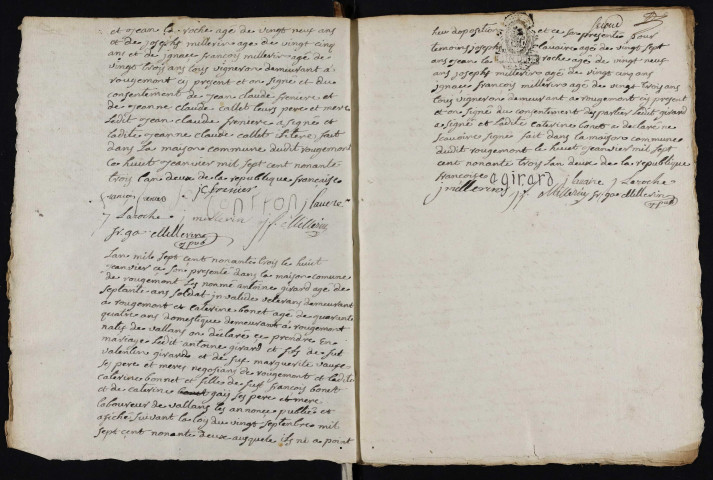 et jean la roche agé de vingt neuf ans
et de joseph millerin agé de vingt cinq
ans et de ignace françois millerin agé de
vingt trois ans tous vigneron demeurant a
rougemont cy présent et on signé et du
consentement de jean claude frenier et
de jeanne claude callet leurs pere et mere
ledit jean claude frenier a signé et
ladite jeanne claude callet illitéré fait
dans la maison commune dudit rougemont
le huiet jeanvier mil sept cent nonante
trois lan deux de la republique françoise
jc frenier
j lavere
j Laroche j millerin jf Millerin
fr. ga Millerin
of pub
Lan mil sept cent nonante trois le huiet
janvier ce son presenté dans la maison comune
de rougemont les nommé antoine girard agé de
septante ans soldat invalide veterans demeurant
a rougemont et caterine bonet agé de quarante
quatre ans domestique demeurante a rougemont
natif de vallans on déclaré ce prendre en
mariage ledit antoine girard et fils de fut
valentin girard et de fux marguerite vaux
ses pere et meres negosians de rougemont et ladite
caterine bonnet et fille de fux françois bonet
et de caterine gais ses pere et mere
laboureur de vallans les annonce publiée et
afiche suivant la loy du vingt septembre mil
sept cent nonante deux ausquele ils ni a point
heu doposition et ce son presenté pour
temoins joseph lavaire agé de vingt sept
ans jean la roche agé de vingt neuf
ans joseph millerin agé de vingt cinq ans
ignace françois millerin agé de vingt trois ans
tous vigneron demeurant a rougemont cy présent
et on signé du consentement des partier ledit girard
a signé et ladite caterine bonet a déclaré ne
scavoire signé fait dans la maison commune
dudit rougemont le huiet jeanvier mil sept
cent nonante trois lan deux de la republique
françoise
a girard j lavaire j Laroche
j millerin jf Millerin fr. ga Millerin
of pub